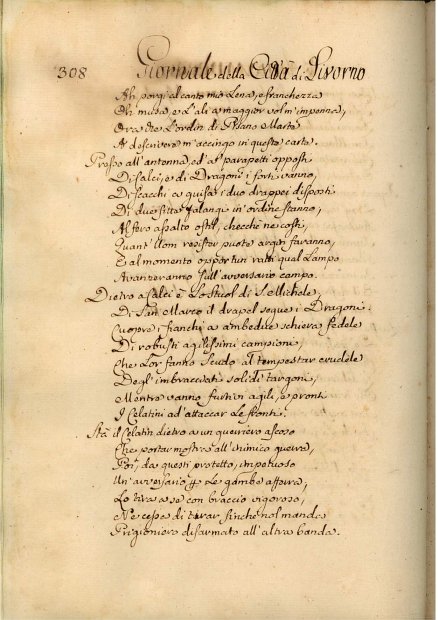 308 Giornale della Città di Livorno
Ah porgi al canto mio Lena, e franchezza
Oh musa, e L'ali a maggior vol m'impenna,
Ora che L'ordin di Pisano Marte
A' descriver m'accingo in queste carte.
Presso all'antenna, ed a' parapetti opposti
Di Calci, e di Dragoni i forti vanno,
Di Scacchi a guisa i duo drappei disposti
Di due fitte falangi in ordine stanno,
Al fero assalto ostil, checchè ne costi,
Quant'Uom resister puote argin faranno,
E al momento opportun ratti qual Lampo
Avanzeranno full'avversario campo.
Dietro a Calci è Lo Stuol di S. Michele
Di San Marco il drapel segue i Dragoni
Cuopre i fianchi a ambedue schiera fedele
Di robusti agilissimi campioni,
Che Lor fanno Scudo al tempestar crudele
Degl'imbracciati solidi targoni,
Mentre vanno furtivi agili, e pronti
I Celatini ad'attaccar Le fronti.
Stà il Celatin dietro a un guerriero ascoso
Che portar mostra all'inimico guerra,
Poi da questi protetto, impetuoso
Un'avversario Le gambe afferra,
Lo tira a se con braccio vigoroso,
Ne cessa di tirar finchè nol manda
Prigioniero disarmato all'altra banda.